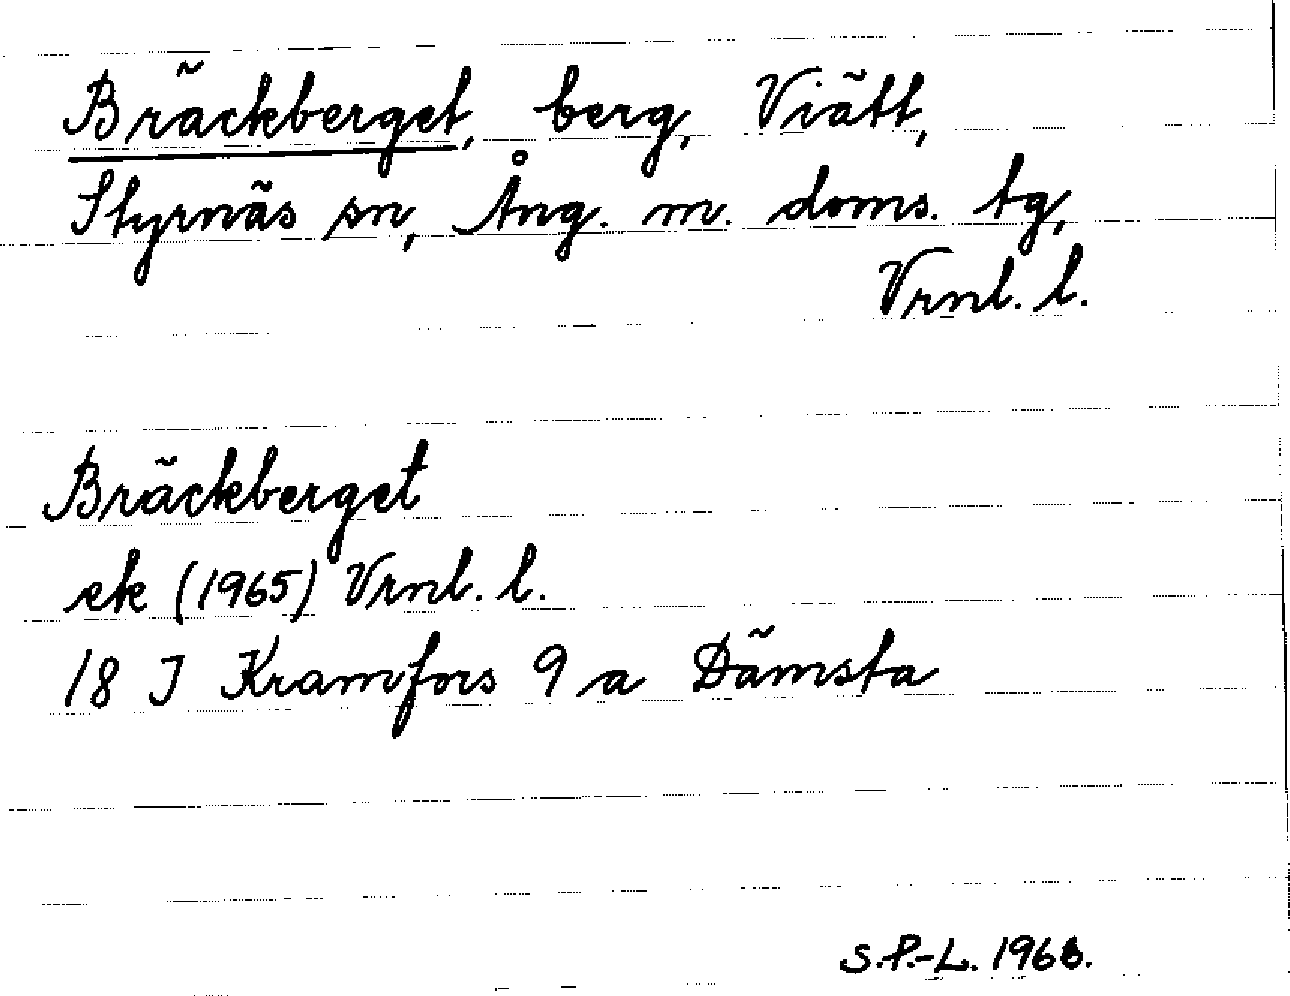 Bräckberget, berg, Viätt,
Styrnäs sn, Ång. m. doms. tg,
Vrnl. l.
Bräckberget
ek (1965) Vrnl. l.
18 J Kramfors 9 a Dämsta
S.P.-L. 1968.